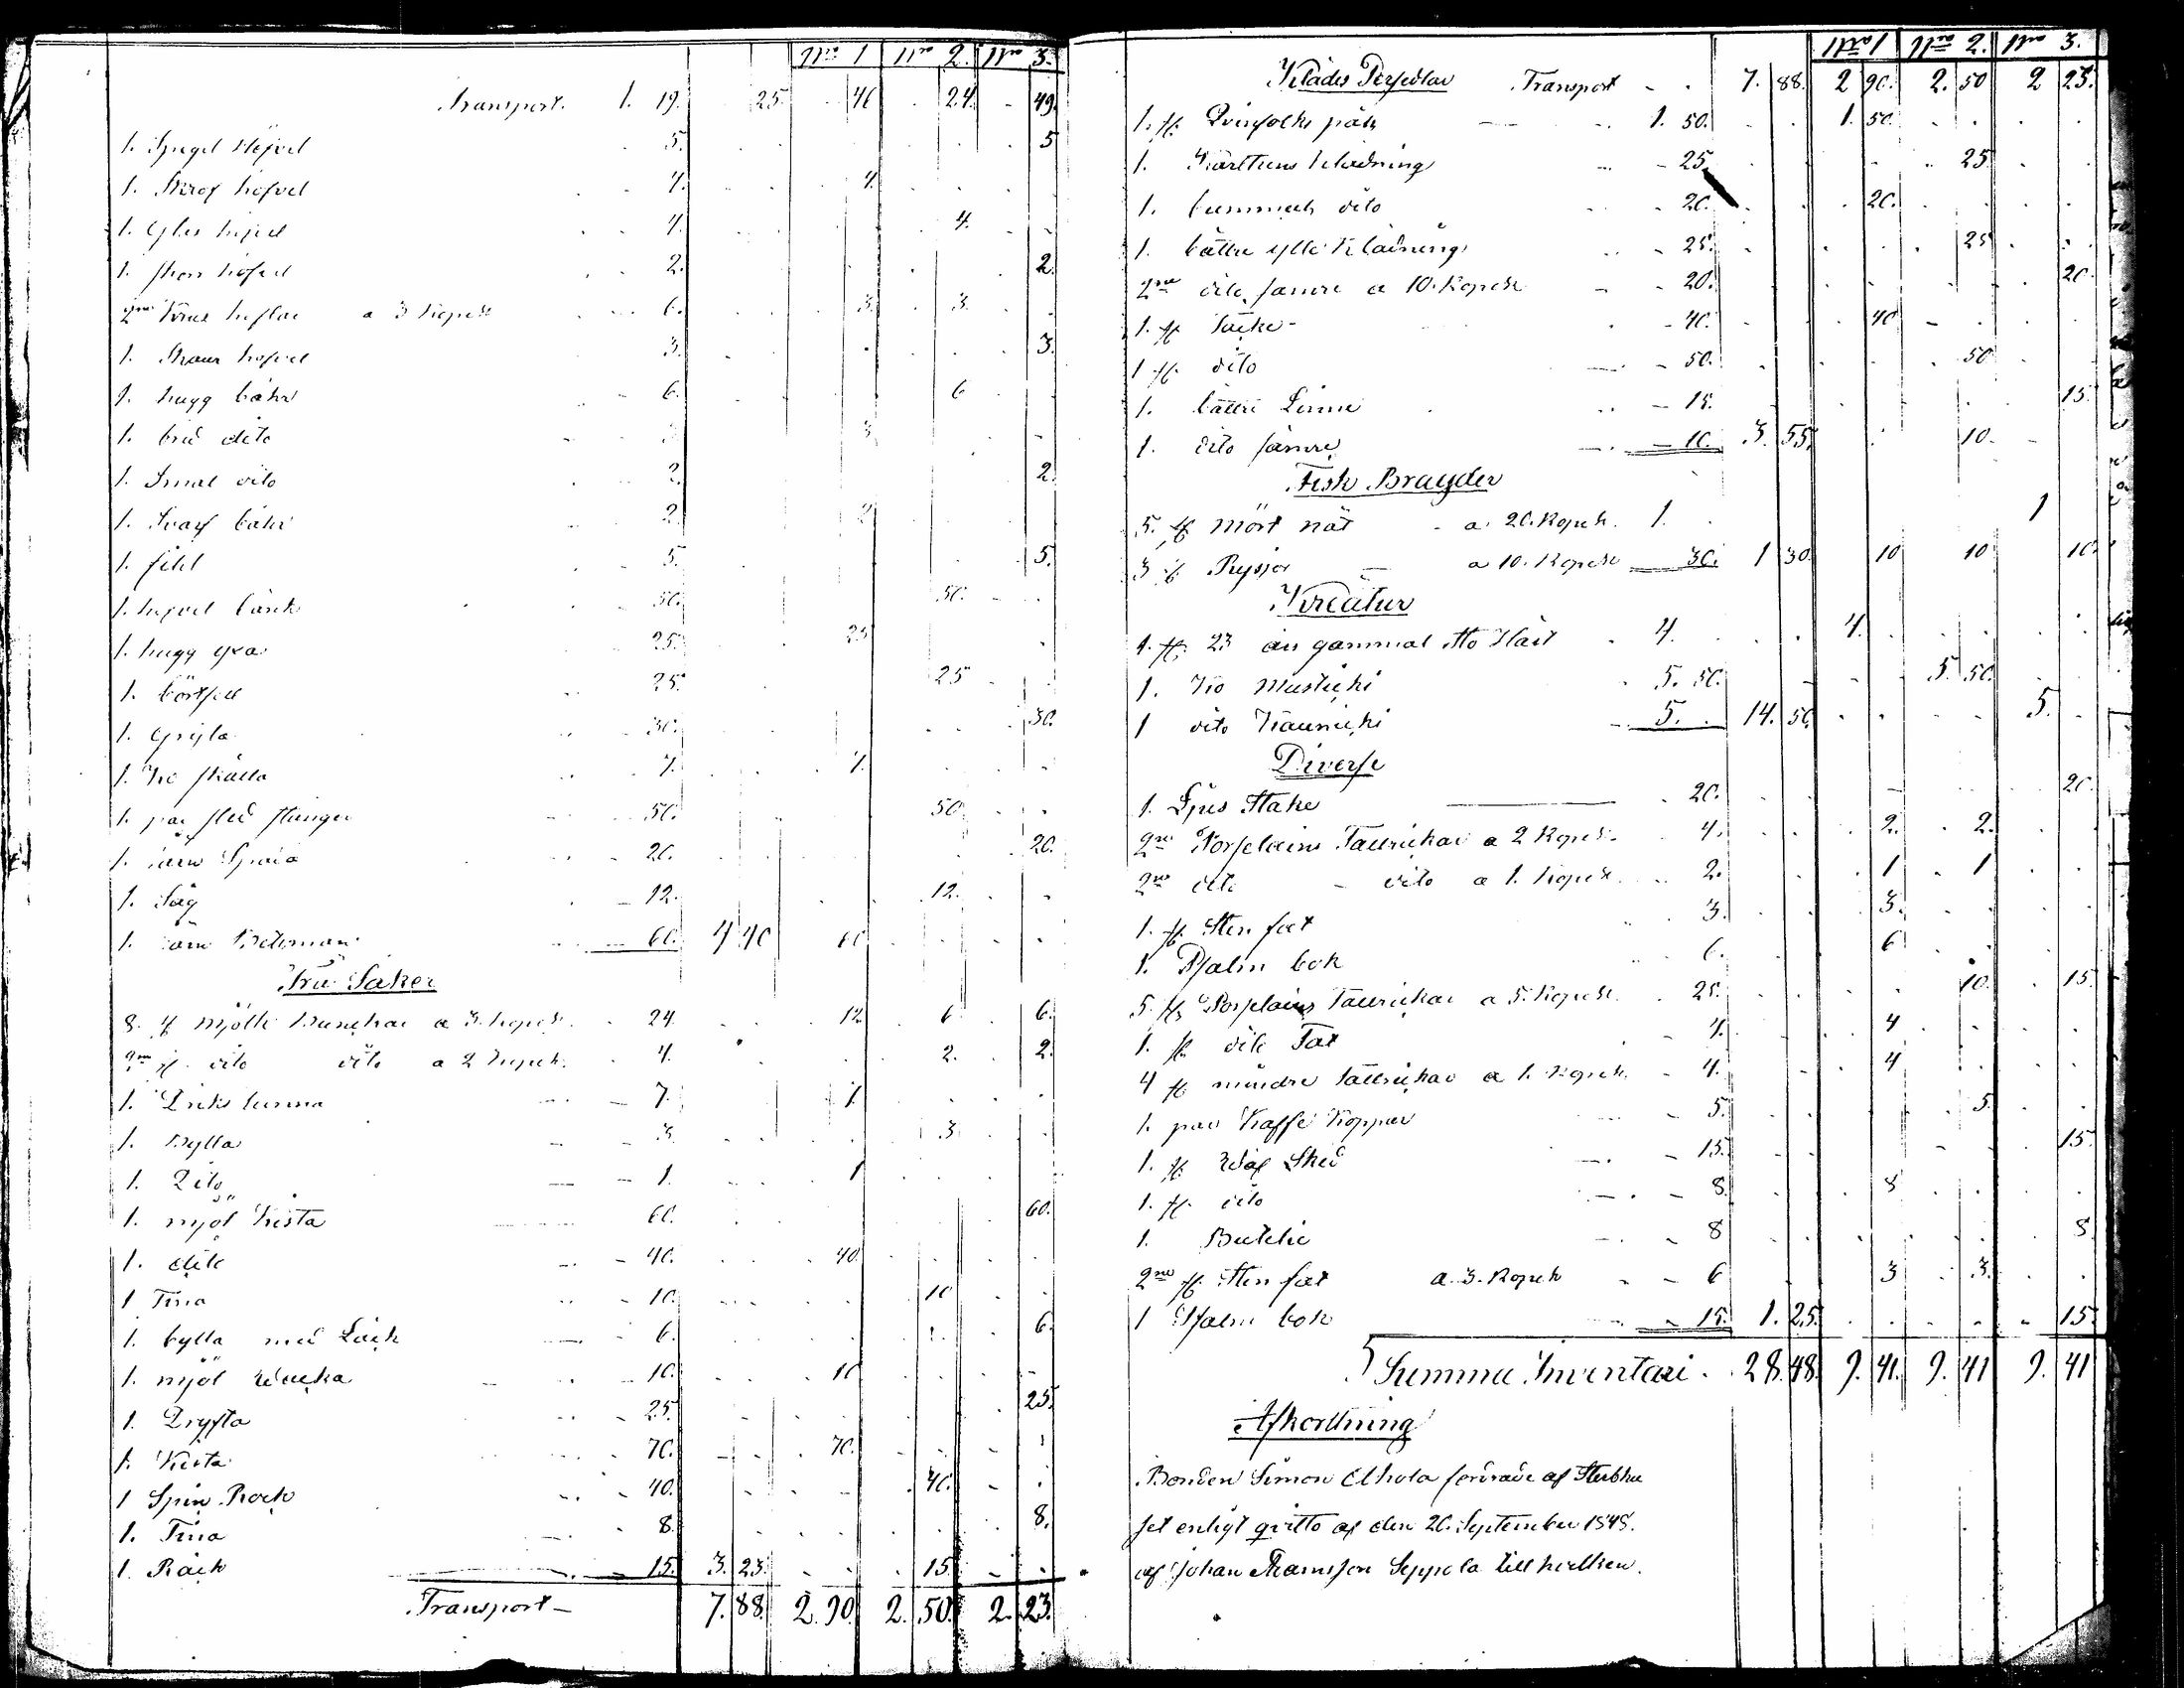 1 att 2 att 3.
Transport. 1. 19. 25. 46 24. 49.
1. Spegel Höfvel 5. 5
1. Skrof höfvel 4. 4.
1. Glas höfvel 4. 4.
1. höfvel 2. 2.
2ne höflar a 3 Kopek 6. 3. 3.
1. höfvel 3. 3.
1. hugg 6. 6
1. dito 3. 3.
1. Smal dito 2. 2.
1. Svarf 2. 2
1. fihl 5. 5.
1. höfvel bänk 50. 50.
1. hugg yxa 25. 25
1. 25. 25
1. Gryta 30. 30.
1. Ko skälla 7. 7.
1. par sled stänger 50. 50
1. 20. 20.
1. Såg 12. 12.
1. järn Betsman 60. 4 40 60
Trä Saker
8. st mjölk Bunckar a 3. Kopek. 24. 12 6 6.
2ne st. dito dito a 2 Kopek. 4. 2. 2.
1. Dricks tunna 7. 7.
1. Bytta 3. 3
1. Dito 1. 1
1. mjöl Kista 60. 60.
1. dito 40. 40
1 Tina 10. 10
1. bytta med Låck 6. 6.
1. mjöl 10. 10
1. Dryfta 25. 25.
1. Kista 70. 70.
1 Spin Rock 40. 40.
1. Tina 8. 8.
1. Räck 15. 3. 23. 15.
Transport 7. 88. 2. 90. 2. 50. 2. 23.
1 att 2. att 3.
Kläds Persedlar Transport 7. 88. 2 90. 2. 50 2 23.
1. st. Qvinfolks päls 1. 50. 1. 50.
1. Klädning 25. 25
1. dito 20. 20.
1. bättre ylle Klädning 25. 25
2ne dito sämre a 10. Kopek 20. 20.
1. st 40. 40
1 st. dito 50. 50
1. bättre Linne 15. 15.
1. dito sämre 10. 3. 55. 10.
Fisk Bragder
5. st mört nät a 20. Kopek. 1. 1
3 st. Rysjor a 10. Kopek 30. 1 30. 10 10 10.
Kreatur
1. st. 23 års gammal Sto Häst 4. 4.
1. Ko Musticki 5. 50. 5. 50.
1 dito Kaunicki 5. 14. 50. 5.
Diverse
1. Ljus Stake 20. 20.
2ne Porslains Tallrickar a 2 Kopek 4. 2. 2.
2ne dito dito a 1. Kopek. 2. 1 1
1. st. Sten fat 3. 3.
1. Psalm bok 6. 6
5. st Porslains Tallrickar a 5. Kopek. 25. 10. 15
1. st. dito Fat 4. 4
4 st mindre tallrickar a 1. Kopek. 4. 4
1. par Kaffe Koppar 5. 5.
1. st. Sked 15. 15.
1. st. dito 8. 8
1. Butelie 8 8
2ne st. Sten fat a. 3. Kopek 6 3 3.
1 Psalm bok 15. 1. 25. 15
Summa Inventari. 28. 48. 9. 41. 9. 41 9. 41
Afkortning
Bonden Simon Elhola fordrade af Sterbhu
set enligt qvitto af den 20. September 1848.
af Johan Seppola